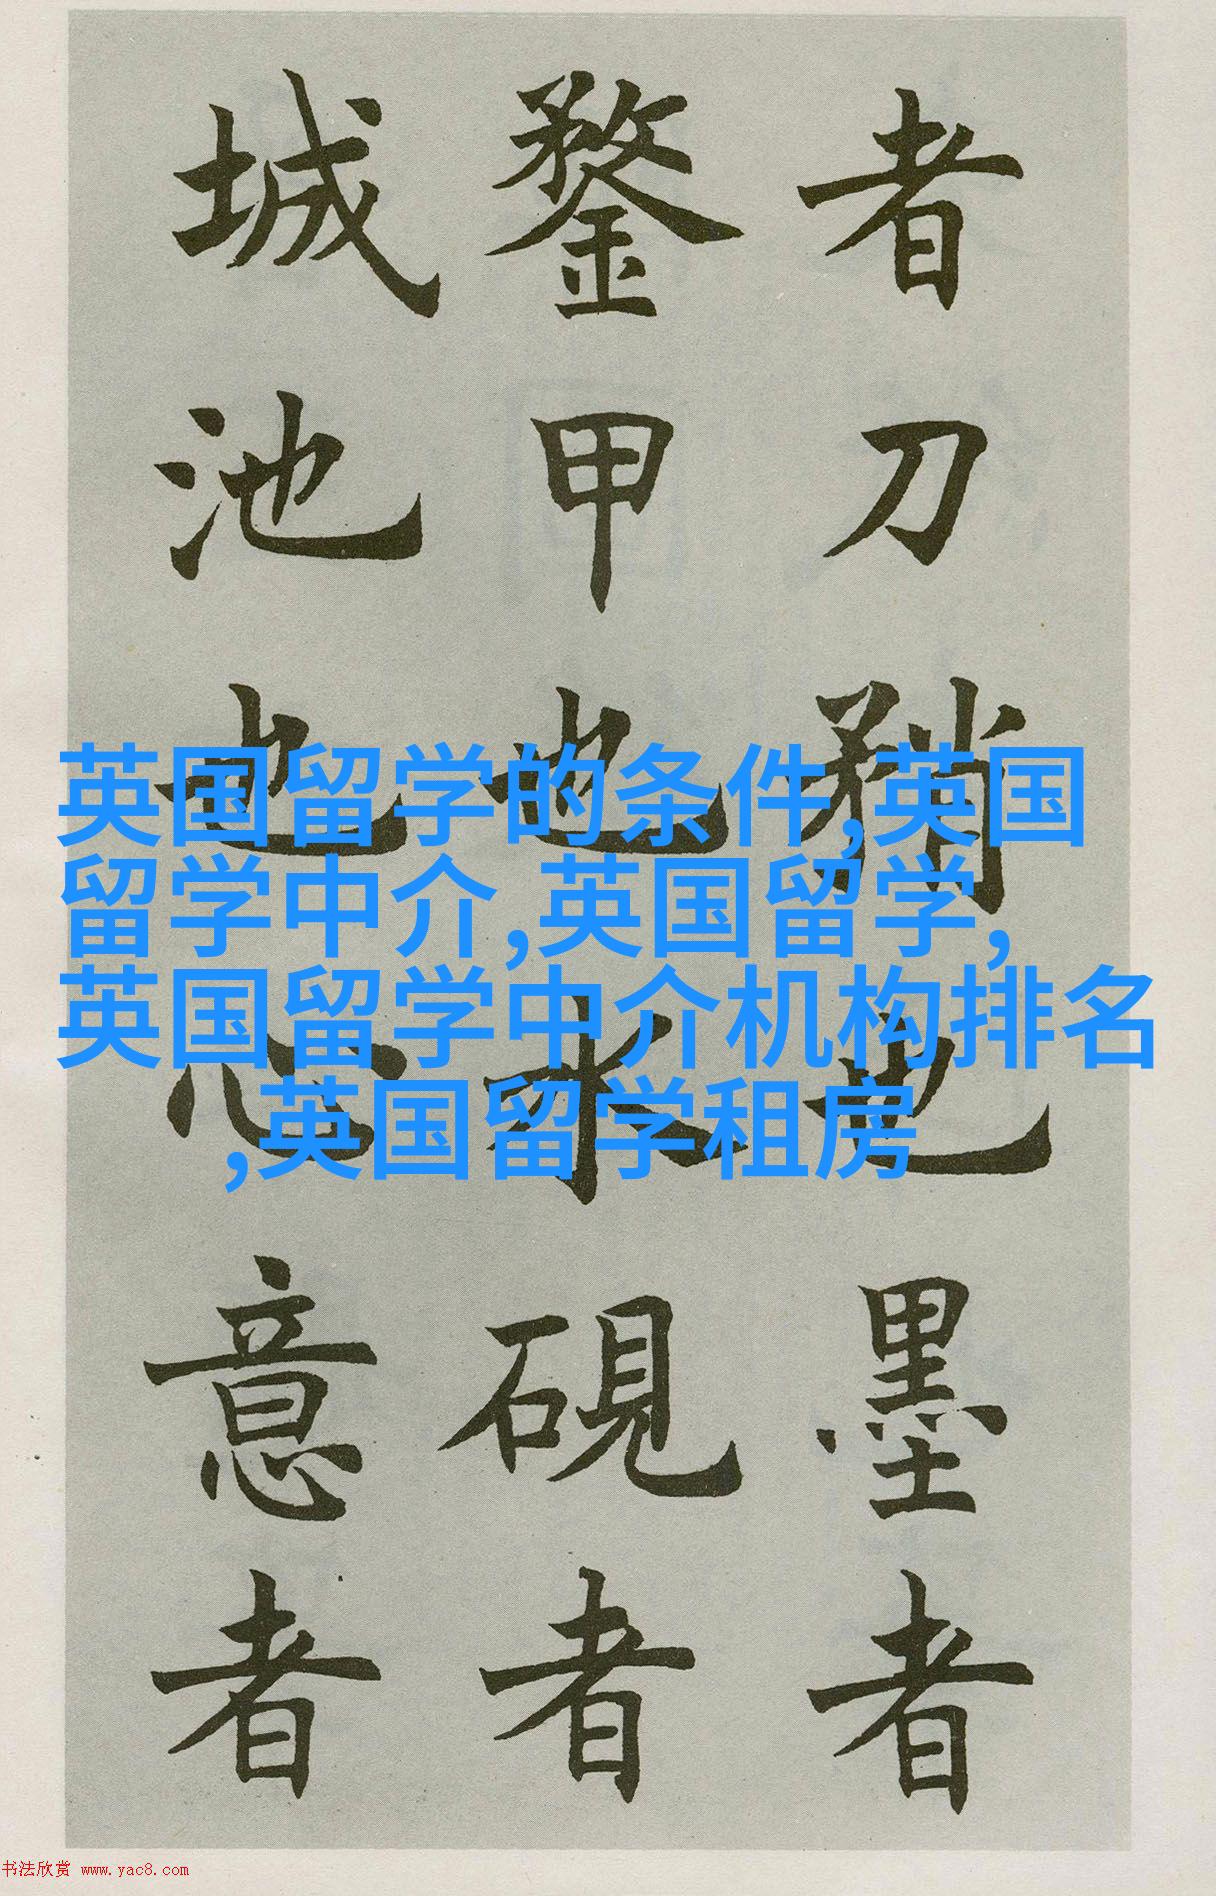 者刀矟也墨者
鍪甲也水硯者
城池也心意者
英国留学的条件,英国
留学中介,英国留学,
英国留学中介机构排名
,英国留学租房
书法欣赏 www.yac8.com